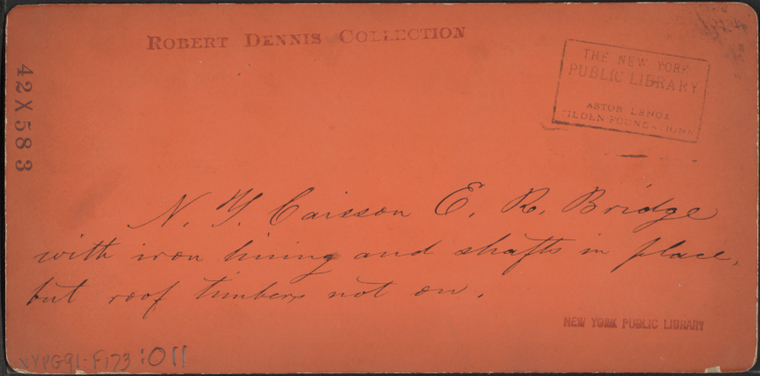 ROBERT DENNIS COLLECTION
THE NEW YORK
PUBLIC LIBRARY
ASTOR LENOX
TILDEN FOUNDATIONS
42X583
N. Y. Caisson E. R. Bridge
with iron lining and shafts in place,
but roof timbers not on.
NEW YORK PUBLIC LIBRARY
:011